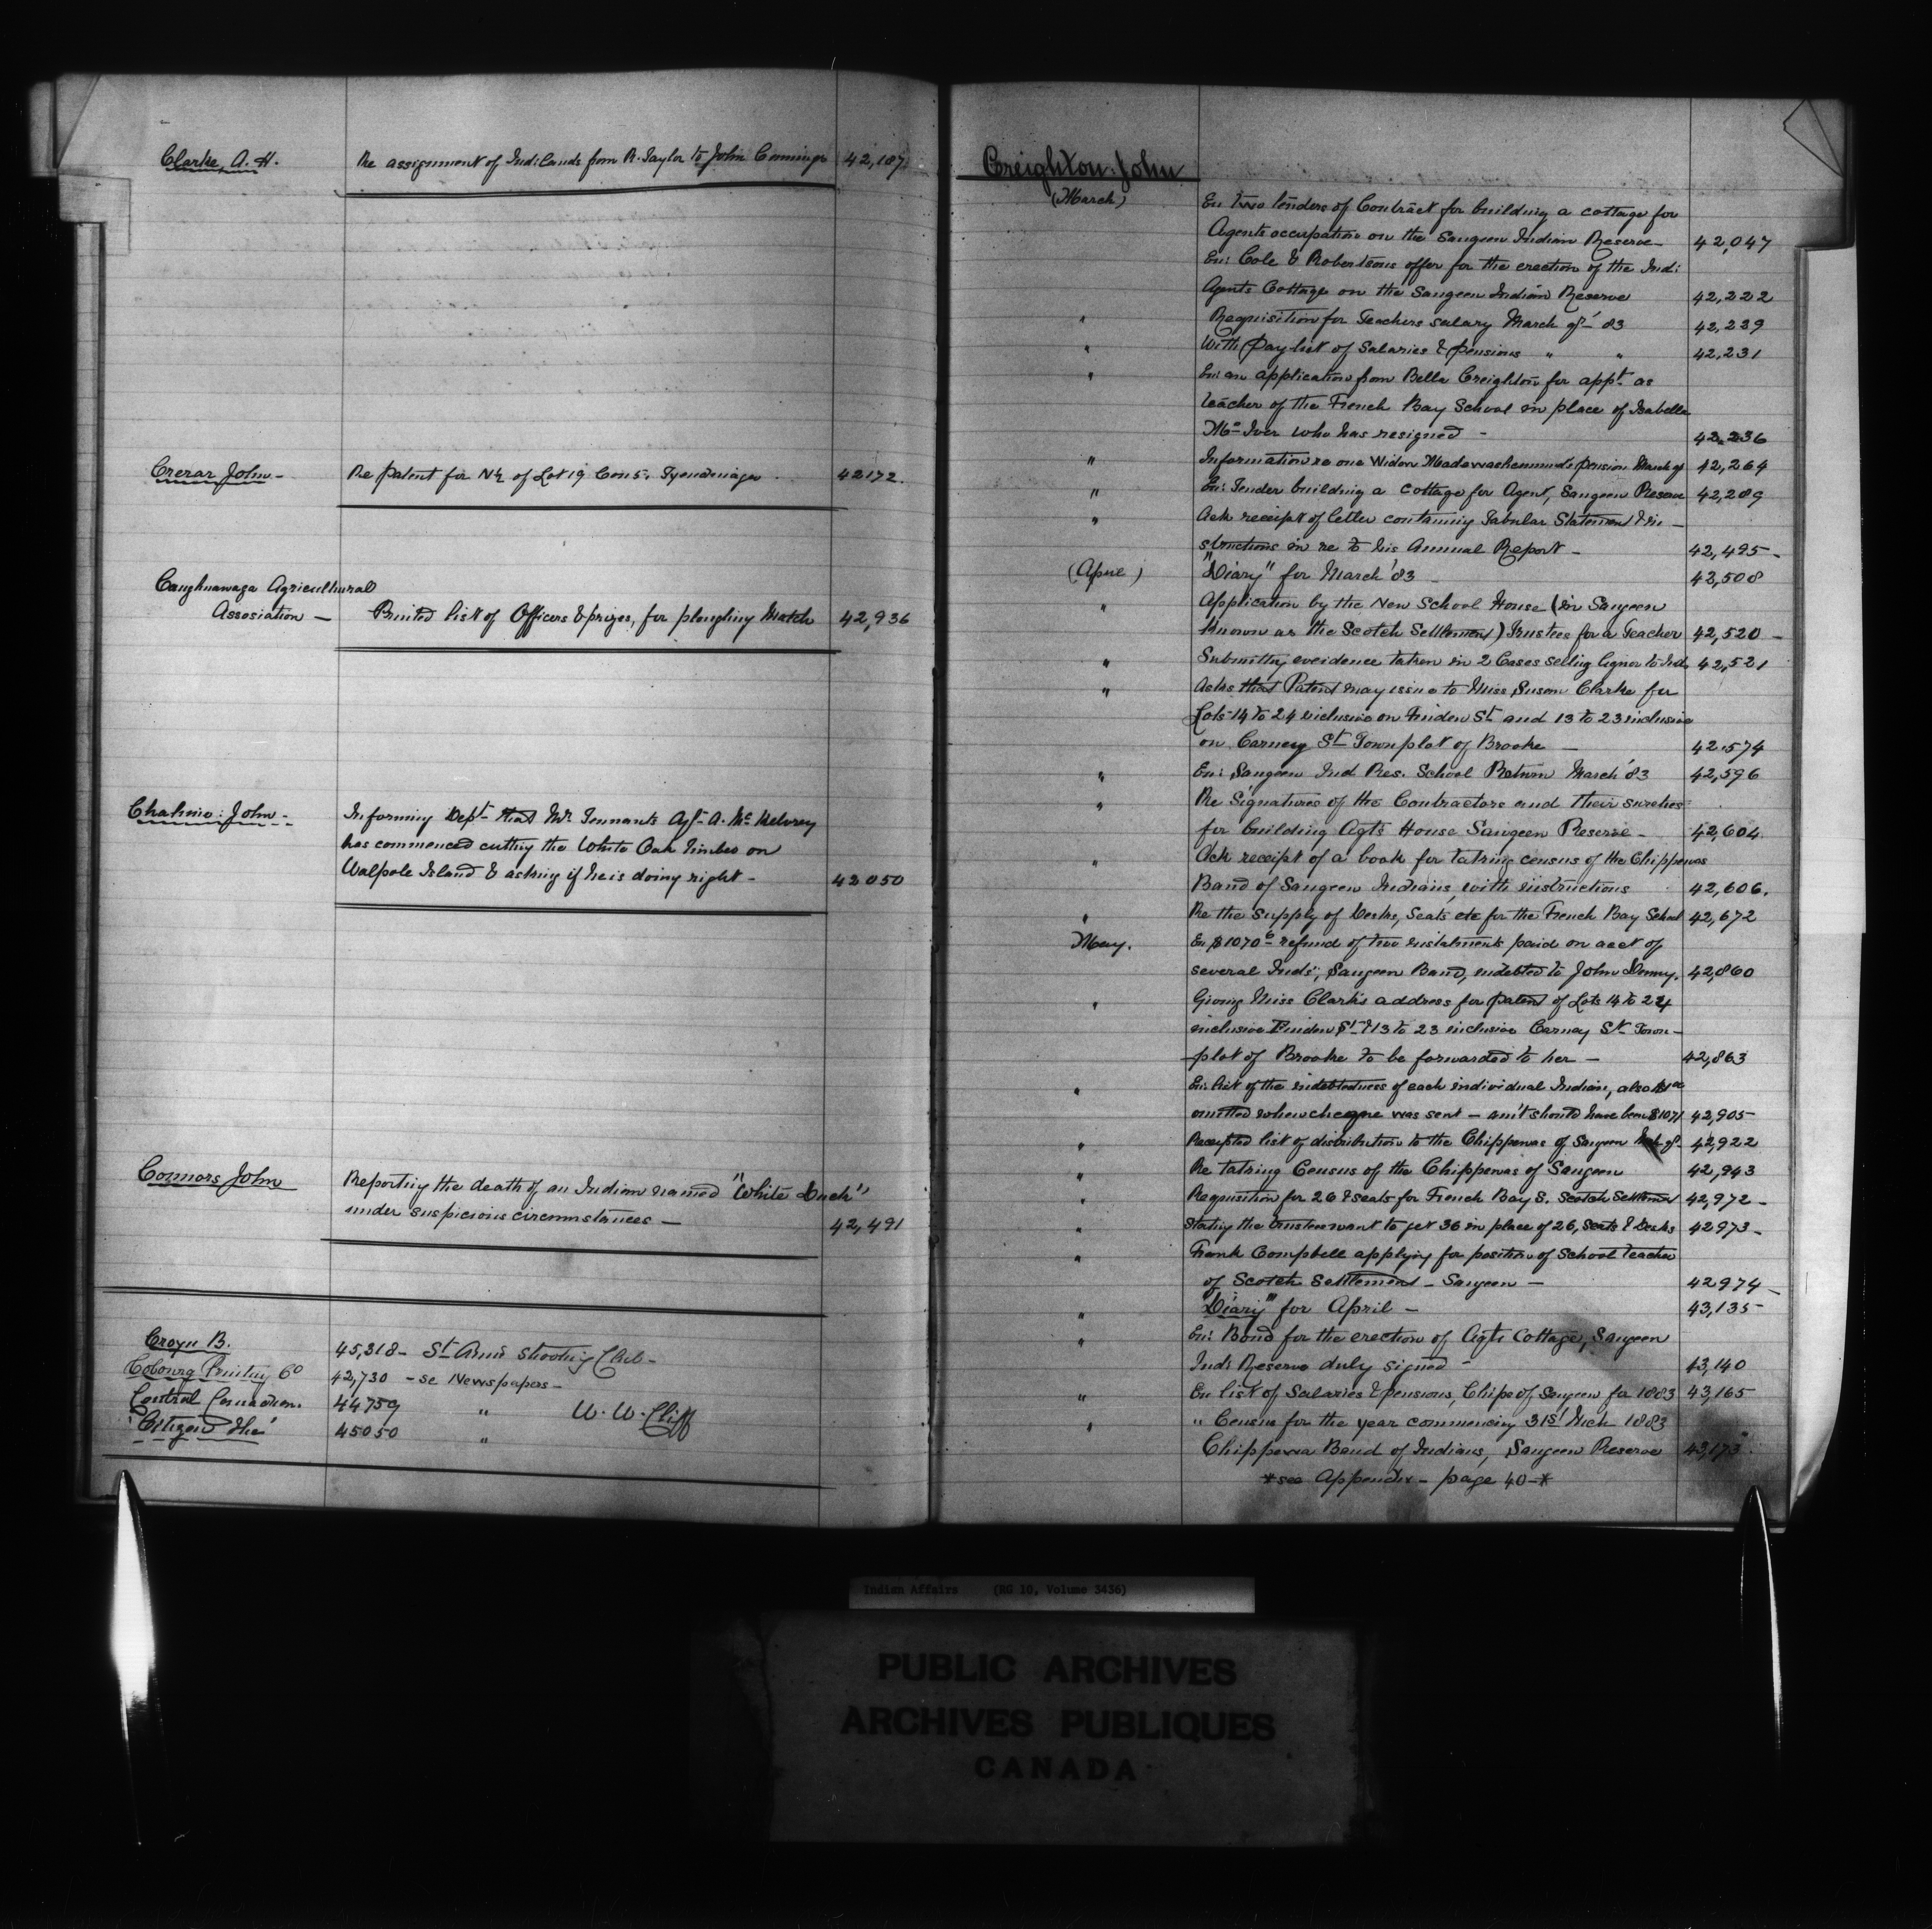 Clarke, A. H. Re assignment of Ind: Lands from R. Taylor to John Cummings 42,187
Crerar John - Re patent for N½ of Lot 19 Con 5. Tyendinaga 42172.
Caughnawaga Agricultural
Assosiation - Printed list of Officers & prizes, for ploughing Match 42,936
John - Informing Dept that Mr Tennants Agt A. Mc
has commenced cutting the White Oak timber on
Walpole Island & asking if he is doing right - 42050
Connors John Reporting the death of an Indian named "White Duck"
under suspicious circumstances - 42,491
B. 45,318 - St Anns Shooting Club -
Cobourg Printing Co 42,730 - se Newspapers -
Central Canadian. 44759 " W. W. Cliff
'Citizen The' 45050 "
Creighton: John
(March) En: two tenders of Contract for building a cottage for
Agents occupation on the Saugeen Indian Reserve - 42,047
En: Cole & Robertsons offer for the erection of the Ind:
Agents Cottage on the Saugeen Indian Reserve 42,222
" Requisition for Teachers salary March qr '83 42,229
" With Pay-list of Salaries & pensions " " 42,231
" En: an application from Bella Creighton for appt. as
teacher of the French Bay School in place of Isabella
Mc Iver who has resigned - 42,236
" Information re one Widow pension March qr 42,264
" En: Tender building a cottage for Agent, Saugeen Reserve 42,289
" Ack receipt of letter containing Tabular Statement & in -
structions in re to his Annual Report - 42,495 -
(April) "Diary" for March '83 - 42,508
" Application by the New School House (in Saugeen
known as the Scotch Settlement) Trustees for a Teacher 42,520 -
" Submittg evidence taken in 2 Cases selling liquor to Ind. 42,521
" Asks that Patent may issue to Miss Susan Clarke for
Lots 14 to 24 inclusive on St and 13 to 23 inclusive
on Carney St Town plot of Brooke - 42,574
" En: Saugeen Ind Res. School Return March '83 42,596
" Re Signatures of the Contractors and their sureties
for building Agts House Saugeen Reserve - 42,604
" Ack receipt of a book for taking census of the Chippewas
Band of Saugeen Indians, with instructions 42,606.
" Re the supply of Desks, Seats etc for the French Bay School 42,672
May. En $1070 refund of two instalments paid on acct of
several Inds; Saugeen Band, indebted to John Denny. 42,860
" Giving Miss Clark's address for patent of Lots 14 to 24
inclusive St & 13 to 23 inclusive Carney St Town -
plot of Brooke to be forwarded to her - 42,863
" En: list of the indebtedness of each individual Indian, also
omitted when cheque was sent - am't should have been $1071 42,905 -
" Receipted list of distribution to the Chippewas of Saugeen Mch qr 42,922
" Re taking Census of the Chippewas of Saugeen 42,943
" Requisition for 26 seats for French Bay S. Scotch Settlement 42,972 -
" Stating the trustees want to get 36 in place of 26, Seats & Desks 42973 -
" Frank Campbell applying for position of School teacher
of Scotch Settlement - Saugeen - 42974 -
" "Diary" for April - 43,135 -
" En: Bond for the erection of Agts Cottage, Saugeen
Inds Reserve duly signed - 43,140
" En list of Salaries & pensions, Chips of Saugeen for 1883 43,165
" " Census for the year commencing 31st Mch 1883
Chippewa Band of Indians, Saugeen Reserve 43,173.
*see Appendix - page 40 -*
Indian Affairs (RG 10, Volume 3436)
PUBLIC ARCHIVES
ARCHIVES PUBLIQUES
CANADA